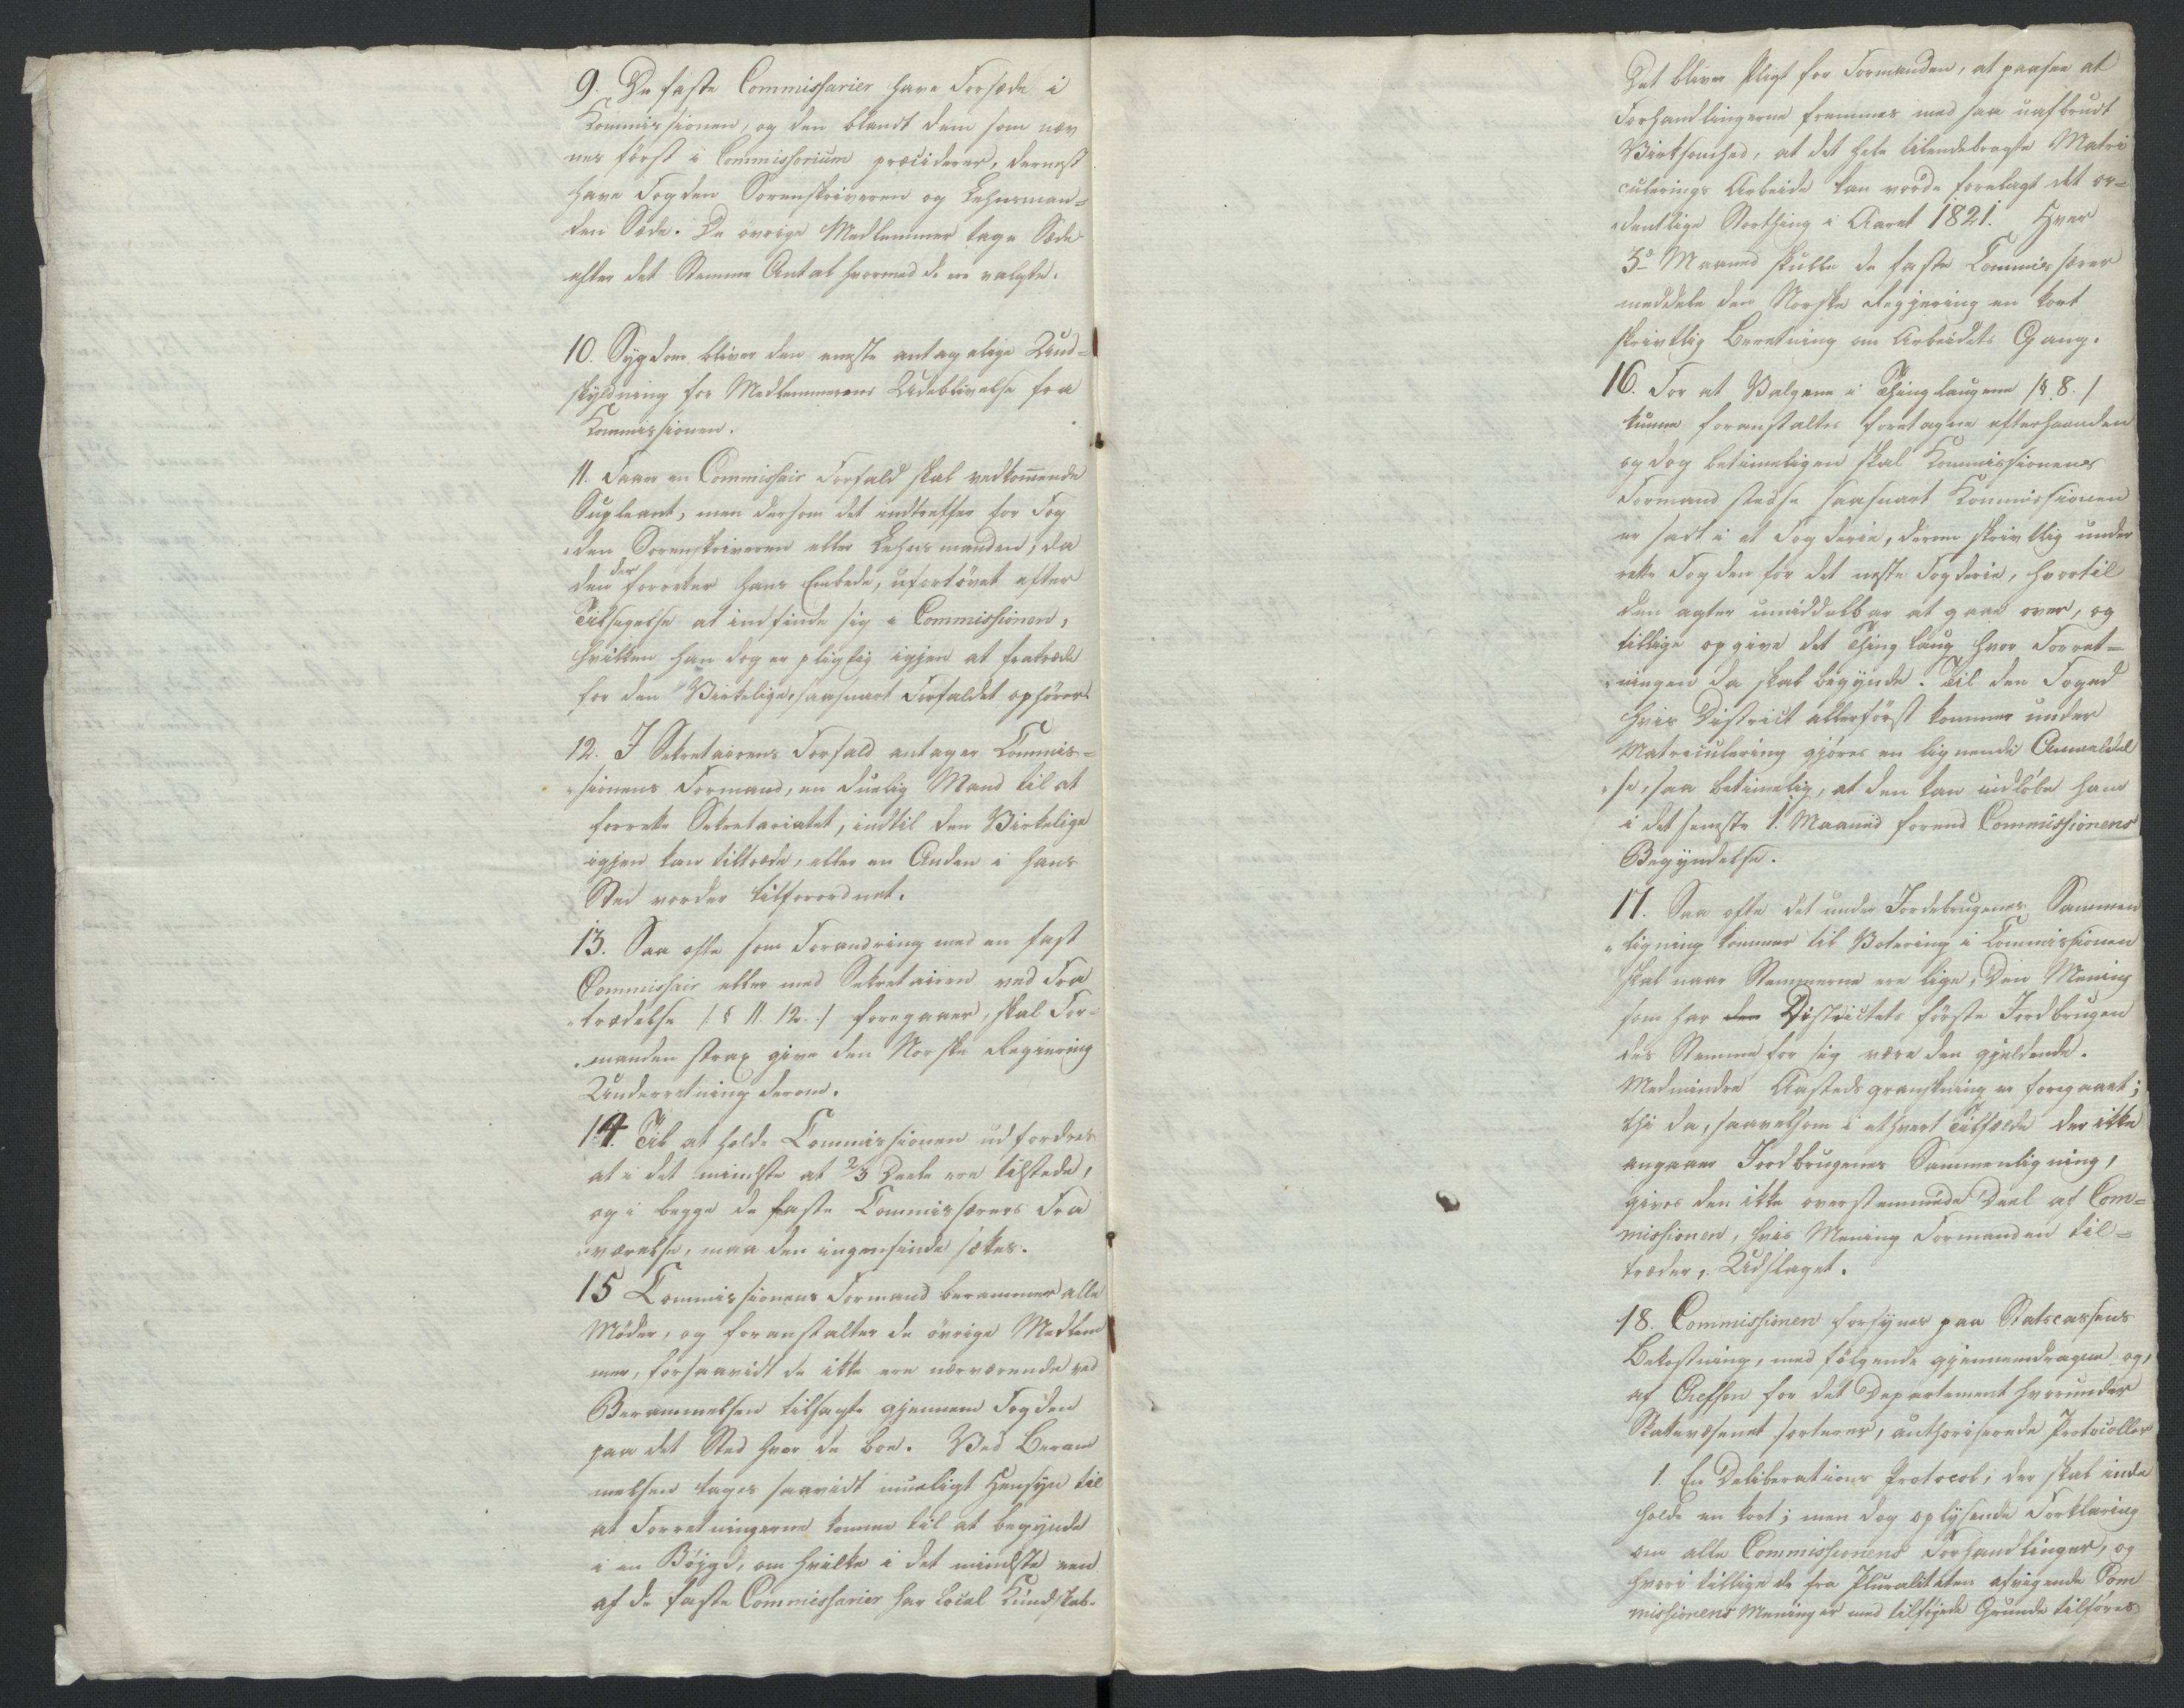 9. De faste Commissarier have Forsæde i
Kommissionen, og den blandt dem som næv
nes først i Commissorium præciderer, dernæst
have Fogden Sorenskriveren og Lehnsman=
den Sæde. De övrige Medlemmer tage Sæde
efter det Stemme Antal hvormed de ere valgte.
10. Sygdom bliver den eneste antagelige Und=
skyldning for Medlemmernes Udeblivelse fra
Kommissionen.
11. Faaer en Commissair Forfald skal vedkommende
Supleant, men dersom det indtreffer for Fog
den Sorenskriveren eller Lehnsmanden, da
den der forretter hans Embede, ufortövet efter
Tilsigelse at indfinde sig i Commissionen,
hvilken han dog er pligtig igjen at fratræde
for den Virkelige, saasnart Forfaldet ophörer.
12. I Sekretairens Forfald antager Commis=
sionens Formand, en duelig Mand til at
forrette Sekretariatet, indtil den Virkelige
igjen kan tiltræde, eller en Anden i hans
Sted vorder tilforordnet.
13. Saa ofte som Forandring med en fast
Commissair eller med Sekretairen ved Fra
trædelse /: § 11. 12. :/ foregaaer, skal For=
manden strax give den Norske Regiering
Underretning derom.
14. Til at holde Commissionen udfordres
at i det mindste at 2/3 Deele ere tilstede,
og i begge de faste Commissærers Fra
værelse, maa den ingensinde sættes.
15 Commissionens Formand berammer alle
Möder, og foranstalter de övrige Medlem
mer, forsaavidt de ikke ere nærværende ved
Berammelsen tilsagte gjennem Fogden
paa det Sted hvor de boe. Ved Beram
melsen tages saavidt mueligt Hensyn til
at Forretningerne komme til at begynde
i en Böygd, om hvilke i det mindste een
af de faste Commissarier har Local Kundskab.
Det bliver Pligt for Formanden, at paasee at
Forhandlingerne fremmes med saa uafbrudt
Virksomhed, at det hele tilendebragte Matri
culerings Arbeide kan vorde forelagt det or=
dentlige Storthing i Aaret 1821. Hver
3de Maaned skulle de faste Commissærer
meddele den Norske Regjering en kort
skrivtlig Beretning om Arbeidets Gang.
16. For at Valgene i Thinglaugene /§ 8. /
kunne foranstaltes foretagne efterhaanden
og dog betimeligen skal Kommissionens
Formand stedse saasnart Kommissionen
er sadt i et Fogderie, derom skrivtlig under
rette Fogden for det neste Fogderie, hvortil
den agter umiddelbar at gaae over, og
tillige opgive det Thinglaug hvor Forret=
ningen da skal begynde. Til den Foged
hvis District allerförst kommer under
Matriculering gjöres en lignende Anmeldel
se, saa betimelig, at den kan indlöbe ham
i det seneste 1. Maaned forend Commissionens
Begyndelse.
17. Saa ofte det under Jordebrugenes Sammen
ligning kommer til Votering i Commissionen
skal naar Stemmerne ere lige, den Mening
som har den Districtets förste Jordbrugen
des Stemme for sig være den gjeldende.
Medmindre Aastedsgranskning er foregaaet;
thi da, saavelsom i ethvert Tilfælde der ikke
angaaer Jordbrugenes Sammenligning,
giver den ikke overstemmede Deel af Com=
missionen, hvis Mening Formanden til=
træder, Udslaget.
18. Commissionen forsynes paa Statscassens
Bekostning, med fölgende gjennemdragne og,
af Cheffen for det Departement hvorunder
Skattevæsenet sorterer, authoriserede Protocoller
1. En Deliberations Protocol, der skal inde
holde en kort; men dog oplysende Forklaring
om alle Commissionens Forhandlinger, og
hvori tillige de fra Pluraliteten afvigende Com
missionens Meninger med tilföiede Grunde tilföres